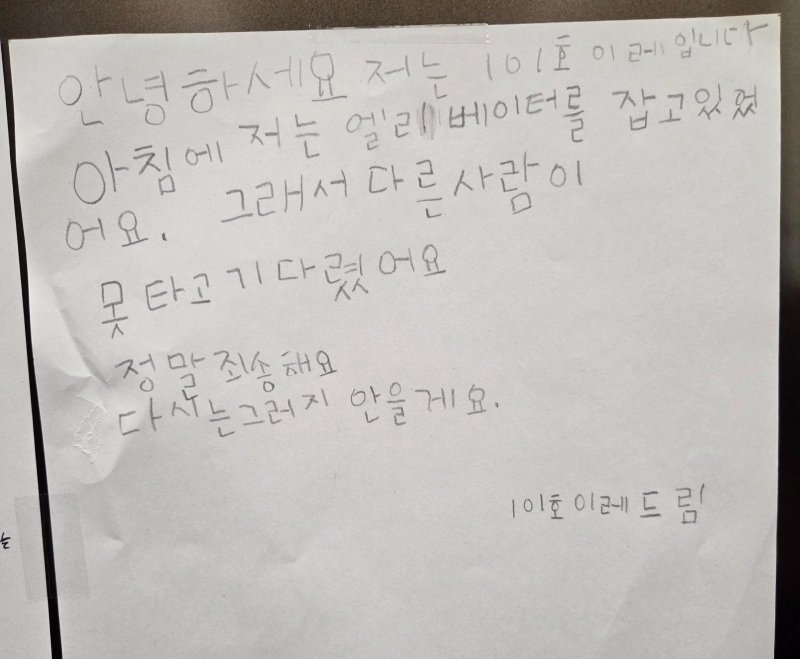 안녕하세요 저는 101호 이레입니다
아침에 저는 엘레베이터를 잡고있었
어요. 그래서 다른사람이
못타고기다렸어요
정말죄송해요
다시는그러지 안을게요.
101호이레드림